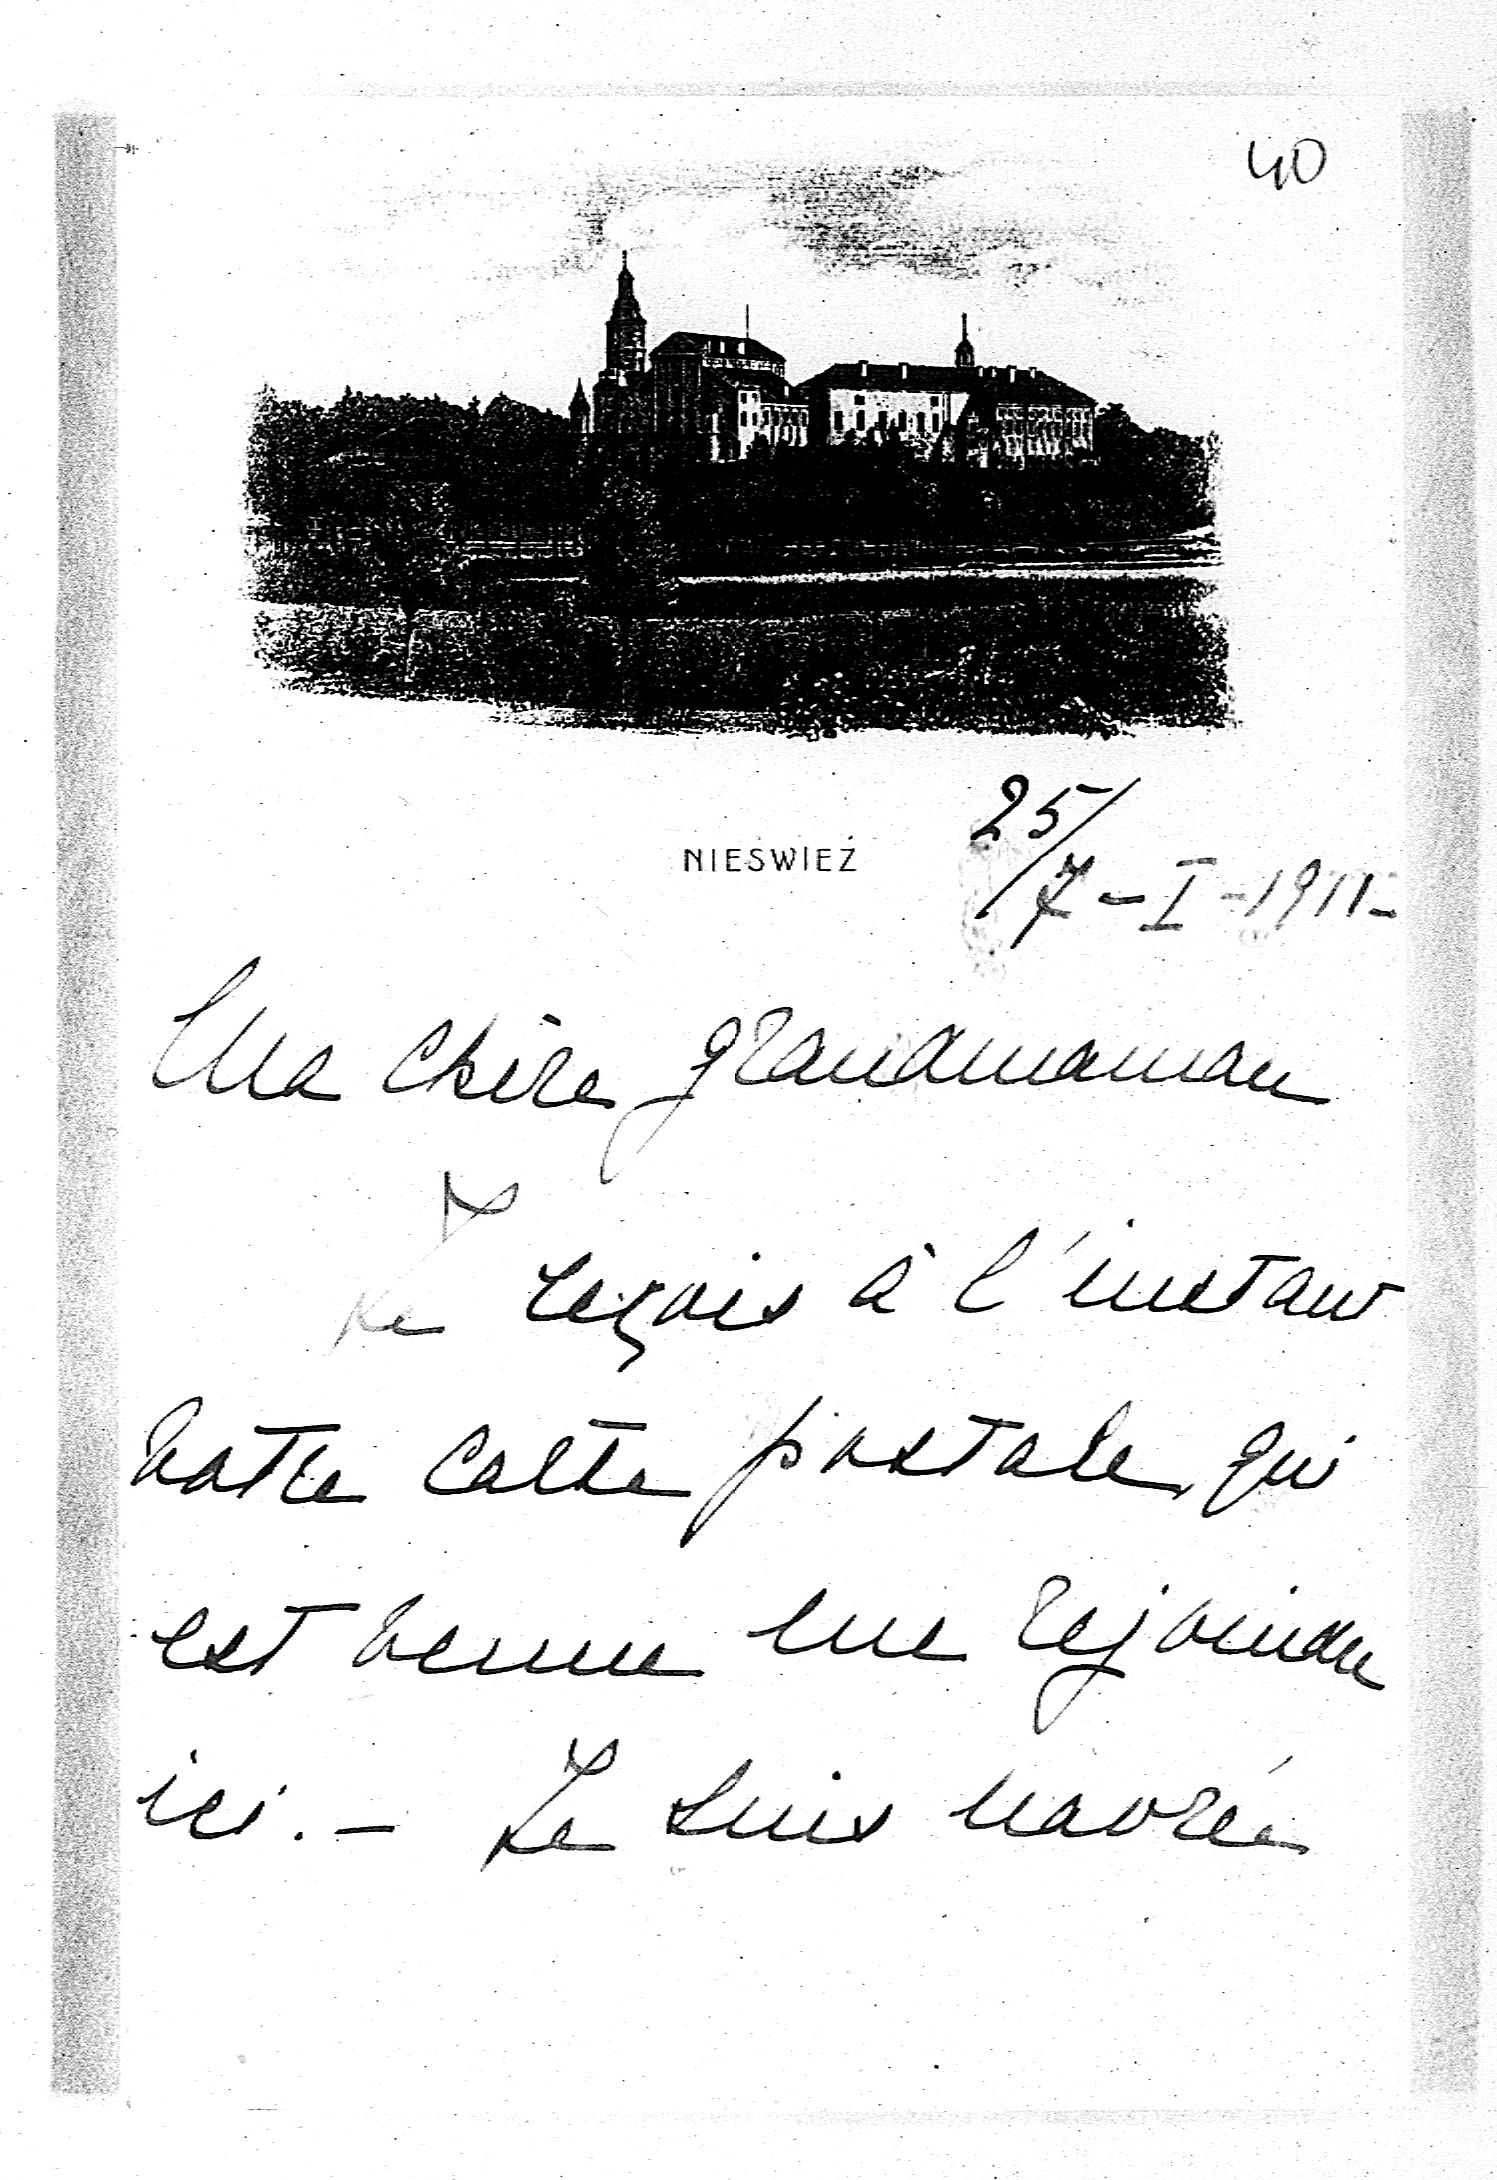 40
NIEŚWIEŻ
25/7-I-1911-
Ma chère grandmaman
Je reçois à l'instant
votre carte postale, qui
est venue me rejoindre
ici. - Je suis navrée